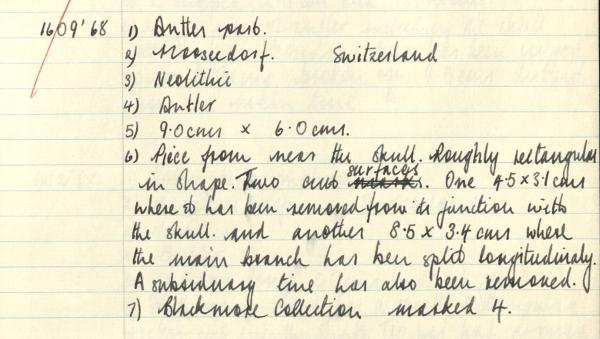 1609'68 1) Antler part.
2) Moosedorf. Switzerland
3) Neolithic
4) Antler
5) 9.0cms x 6.0cms.
6) Piece from near the skull. Roughly rectangular
in shape. Two cut surfaces. One 4.5 x 3.1 cms
where it has been removed from its junction with
the skull. and another 8.5 x 3.4 cms where
the main branch has been split longitudinaly.
A subsiduary tine has also been removed.
7) Blackmore Collection marked 4.